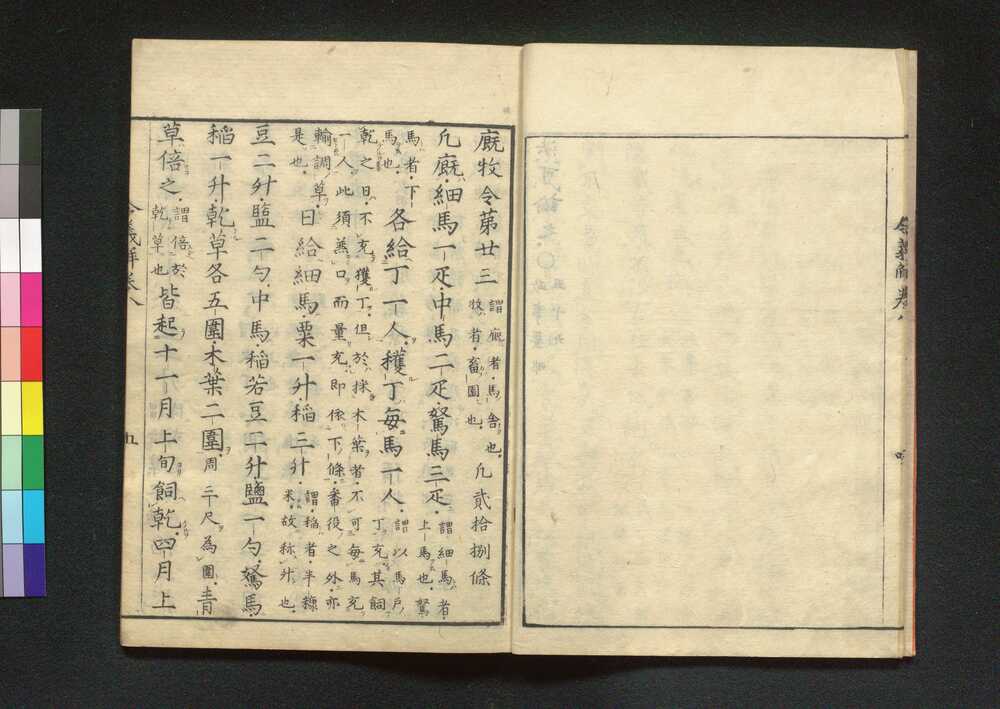 令義解卷八
廐牧令第廿三 謂廐者馬舎也
牧者畜園也 凡貳拾捌條
凡廐細馬一疋中馬二疋駑馬三疋 謂細馬者
上馬也駑
馬者下
馬也 各給丁一人穫丁毎馬一人 謂以馬戸
丁充其飼
乾之日不充穫丁但於採木葉者不可毎馬充
一人此須兼口而量充即依下條番役之外亦
輸調草
是也 日給細馬粟一升稲三升 謂稲者半糠
米故称升也
豆二升塩二勺中馬稲若豆二升鹽一勺駑馬
稲一升乾草各五圍木葉二圍 周三尺為圍青
草倍之 謂倍於
乾草也 皆起十一月上旬飼乾四月上
令義解卷八